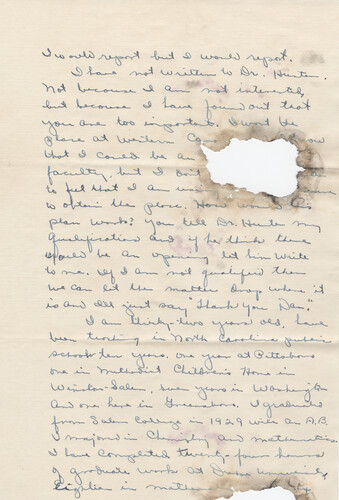 I would report but I would report.
I have not written to Dr. Hunter.
Not because I am not interested,
but because I have found out that
you are too important. I want the
place at Western
that I could be an
faculty, but I don't
to feel that I am
to obtain the place. How
plan work? You tell Dr. Hunter my
qualification and if he think there
would be an opening let him write
to me. If I am not qualified then
we can let the matter drop where it
is and I'll just say "Thank you Dan."
I am thirty-two years old, have
been teaching in North Carolina public
schools ten years, one year at Pittsboro
one in Methodist Children's Home in
Winston-Salem, seven years in Washington
and one here in Greensboro. I graduated
from Salem College in 1929 with an A.B.
I majored in Chemistry and mathematics.
I have completed twenty-four hours
of graduate work at Duke University
Eighteen in